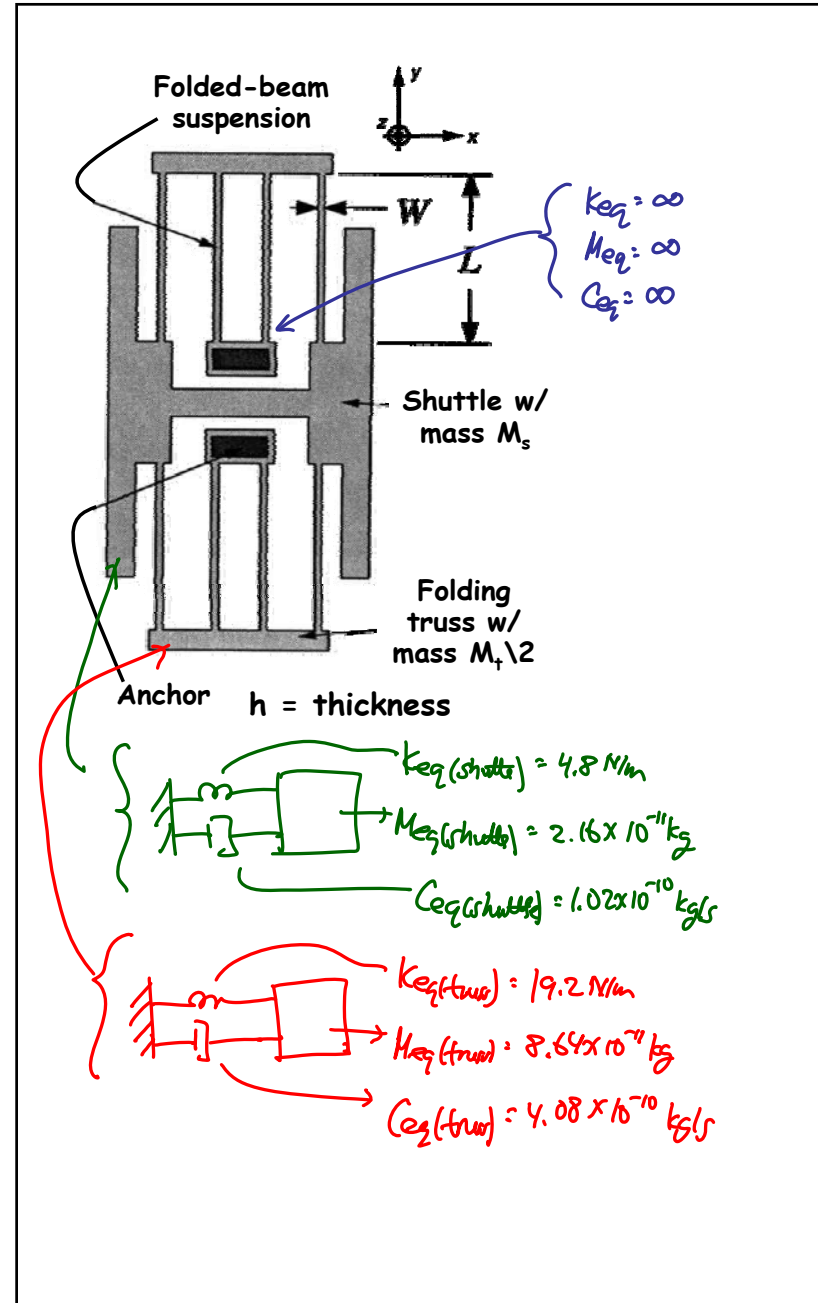 Folded-beam
suspension
y
z
x
W
L
Keq = ∞
Meq = ∞
Ceq = ∞
Shuttle w/
mass Ms
Folding
truss w/
mass Mt\2
Anchor
h = thickness
Keq(shuttle) = 4.8 N/m
Meq(shuttle) = 2.16×10⁻¹¹ kg
Ceq(shuttle) = 1.02×10⁻¹⁰ kg/s
Keq(truss) = 19.2 N/m
Meq(truss) = 8.64×10⁻¹¹ kg
Ceq(truss) = 4.08×10⁻¹⁰ kg/s